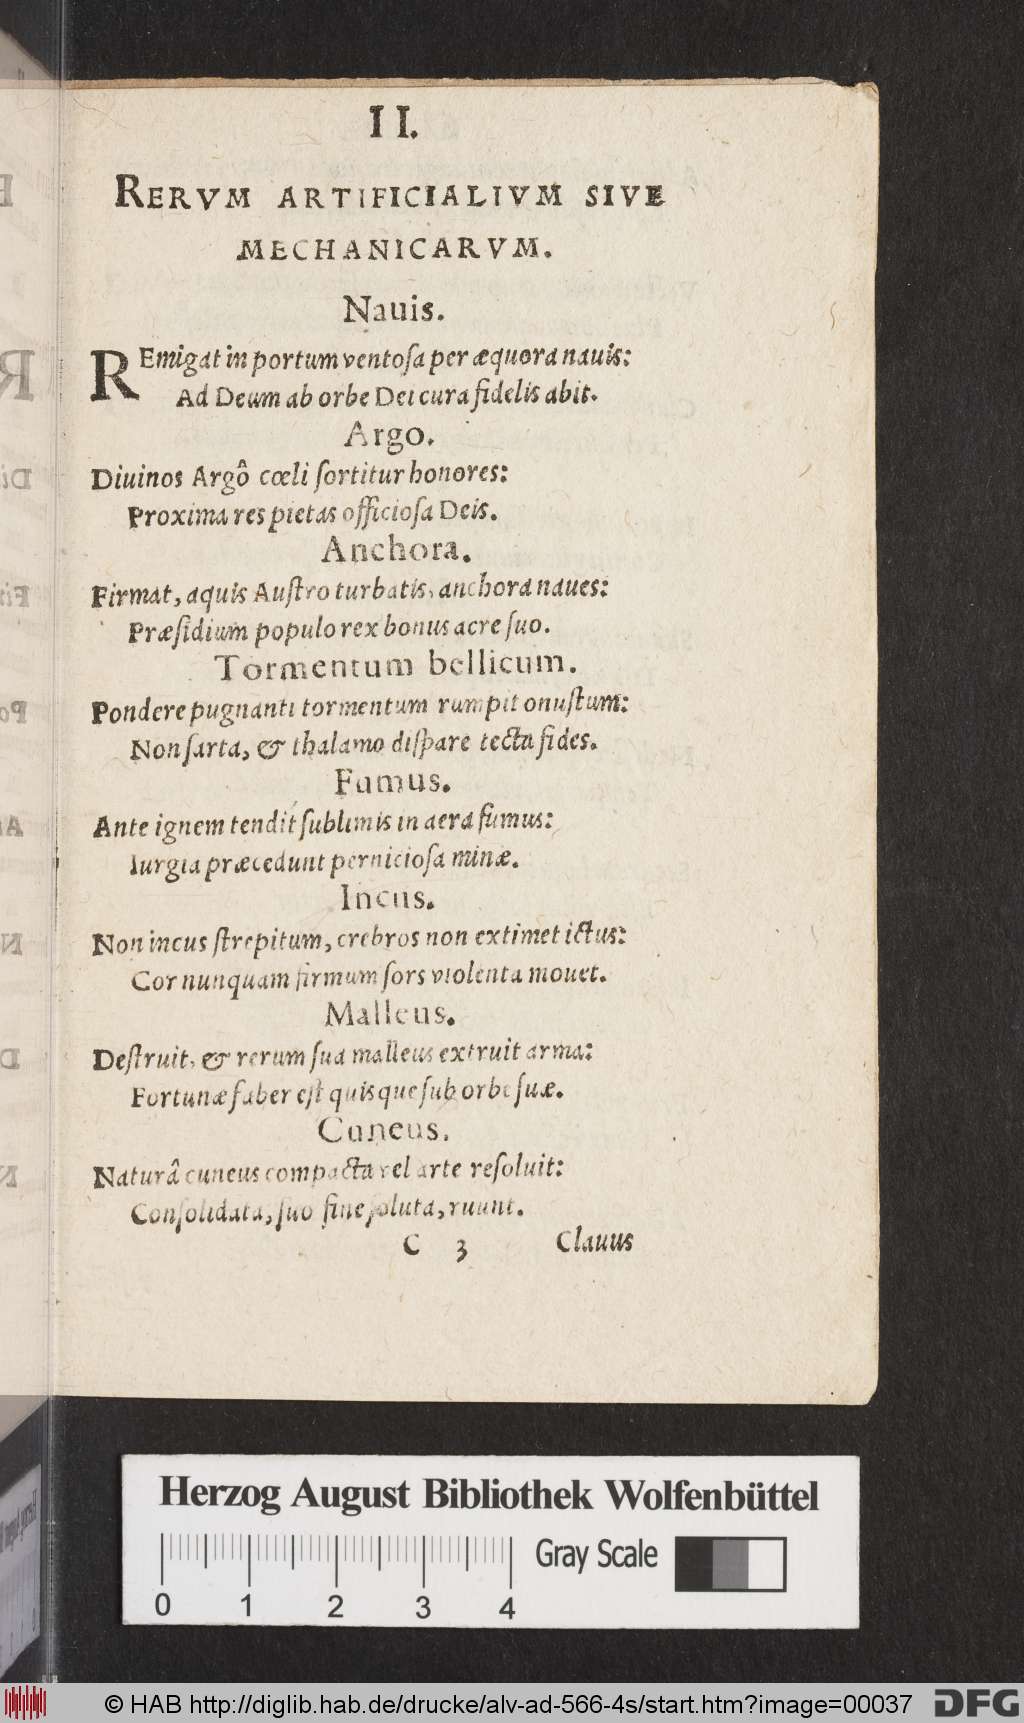 II.
RERVM ARTIFICIALIVM SIVE
MECHANICARVM.
Nauis.
REmigat in portum ventoſa per æquora nauis:
Ad Deum ab orbe Dei cura fidelis abit.
Argo.
Diuinos Argô cœli ſortitur honores:
Proxima res pietas officioſa Deis.
Anchora.
Firmat, aquis Auſtro turbatis, anchora naues:
Præſidium populo rex bonus acre ſuo.
Tormentum bellicum.
Pondere pugnanti tormentum rumpit onuſtum:
Non ſarta, & thalamo diſpare tecta fides.
Fumus.
Ante ignem tendit ſublimis in aera fumus:
Iurgia præcedunt pernicioſa minæ.
Incus.
Non incus ſtrepitum, crebros non extimet ictus:
Cor nunquam firmum ſors violenta mouet.
Malleus.
Deſtruit, & rerum ſua malleus extruit arma:
Fortunæ faber eſt quisque ſub orbe ſuæ.
Cuneus.
Naturâ cuneus compacta vel arte reſoluit:
Conſolidata, ſuo fine ſoluta, ruunt.
C 3 Clauus
Herzog August Bibliothek Wolfenbüttel
Gray Scale
0 1 2 3 4
© HAB http://diglib.hab.de/drucke/alv-ad-566-4s/start.htm?image=00037 DFG